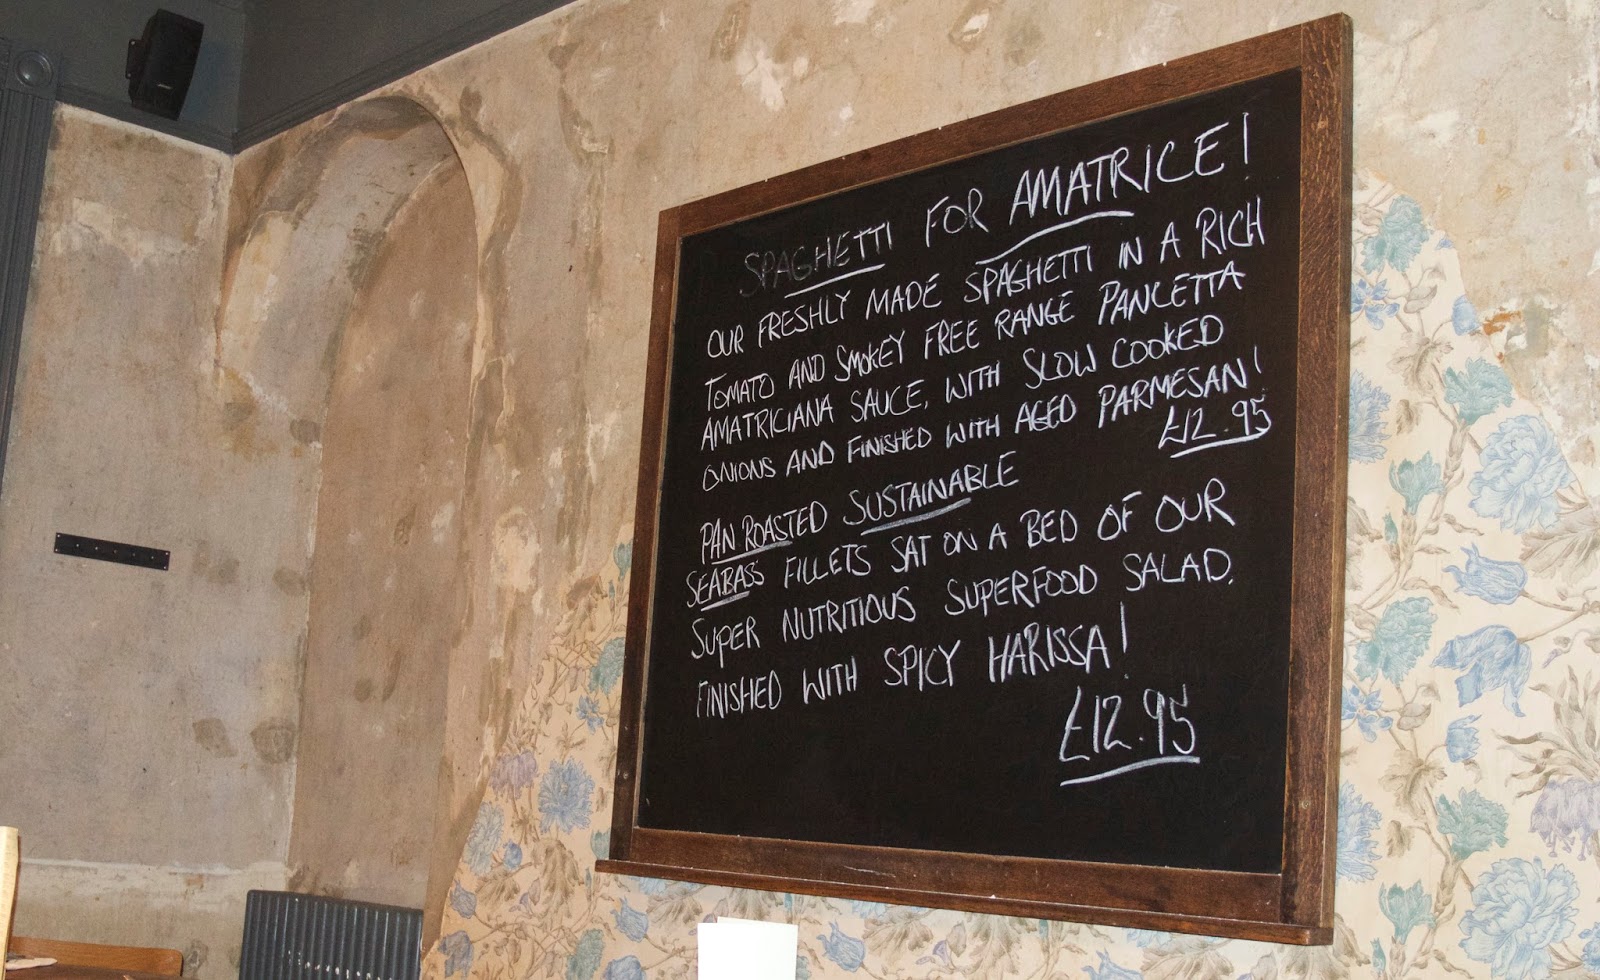 SPAGHETTI FOR AMATRICE!
OUR FRESHLY MADE SPAGHETTI IN A RICH
TOMATO AND SMOKEY FREE RANGE PANCETTA
AMATRICIANA SAUCE, WITH SLOW COOKED
ONIONS AND FINISHED WITH AGED PARMESAN!
£12.95
PAN ROASTED SUSTAINABLE
SEABASS FILLETS SAT ON A BED OF OUR
SUPER NUTRITIOUS SUPERFOOD SALAD.
FINISHED WITH SPICY HARISSA!
£12.95